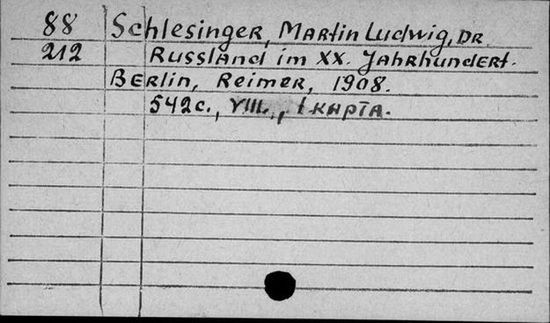 88 Schlesinger, Martin Ludwig, DR.
212 Russland im XX. Jahrhundert.
Berlin, Reimer, 1908.
542 c., VIII, 1 карта.